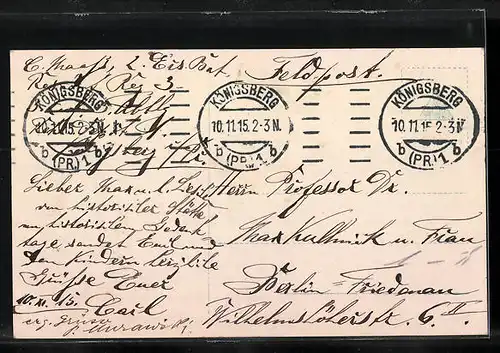 C. Maaß, 2. Eis. Bat.
Feldpost.
KÖNIGSBERG
10.11.15.2-3N.
b (PR) 1 b
KÖNIGSBERG
10.11.15.2-3N.
b (PR) 1 b
KÖNIGSBERG
10.11.15.2-3N.
b (PR) 1 b
Lieber Max u. l.
von historischer Stätte
am historischen Gedenk
tage, sendet Euch und
den Kindern herzliche
Grüße Euer
10.11.15. Carl
erg. Gruss
Herrn Professor Dr.
Max u. Frau
Berlin-Friedenau
Wilhelmshöherstr. 6. II.